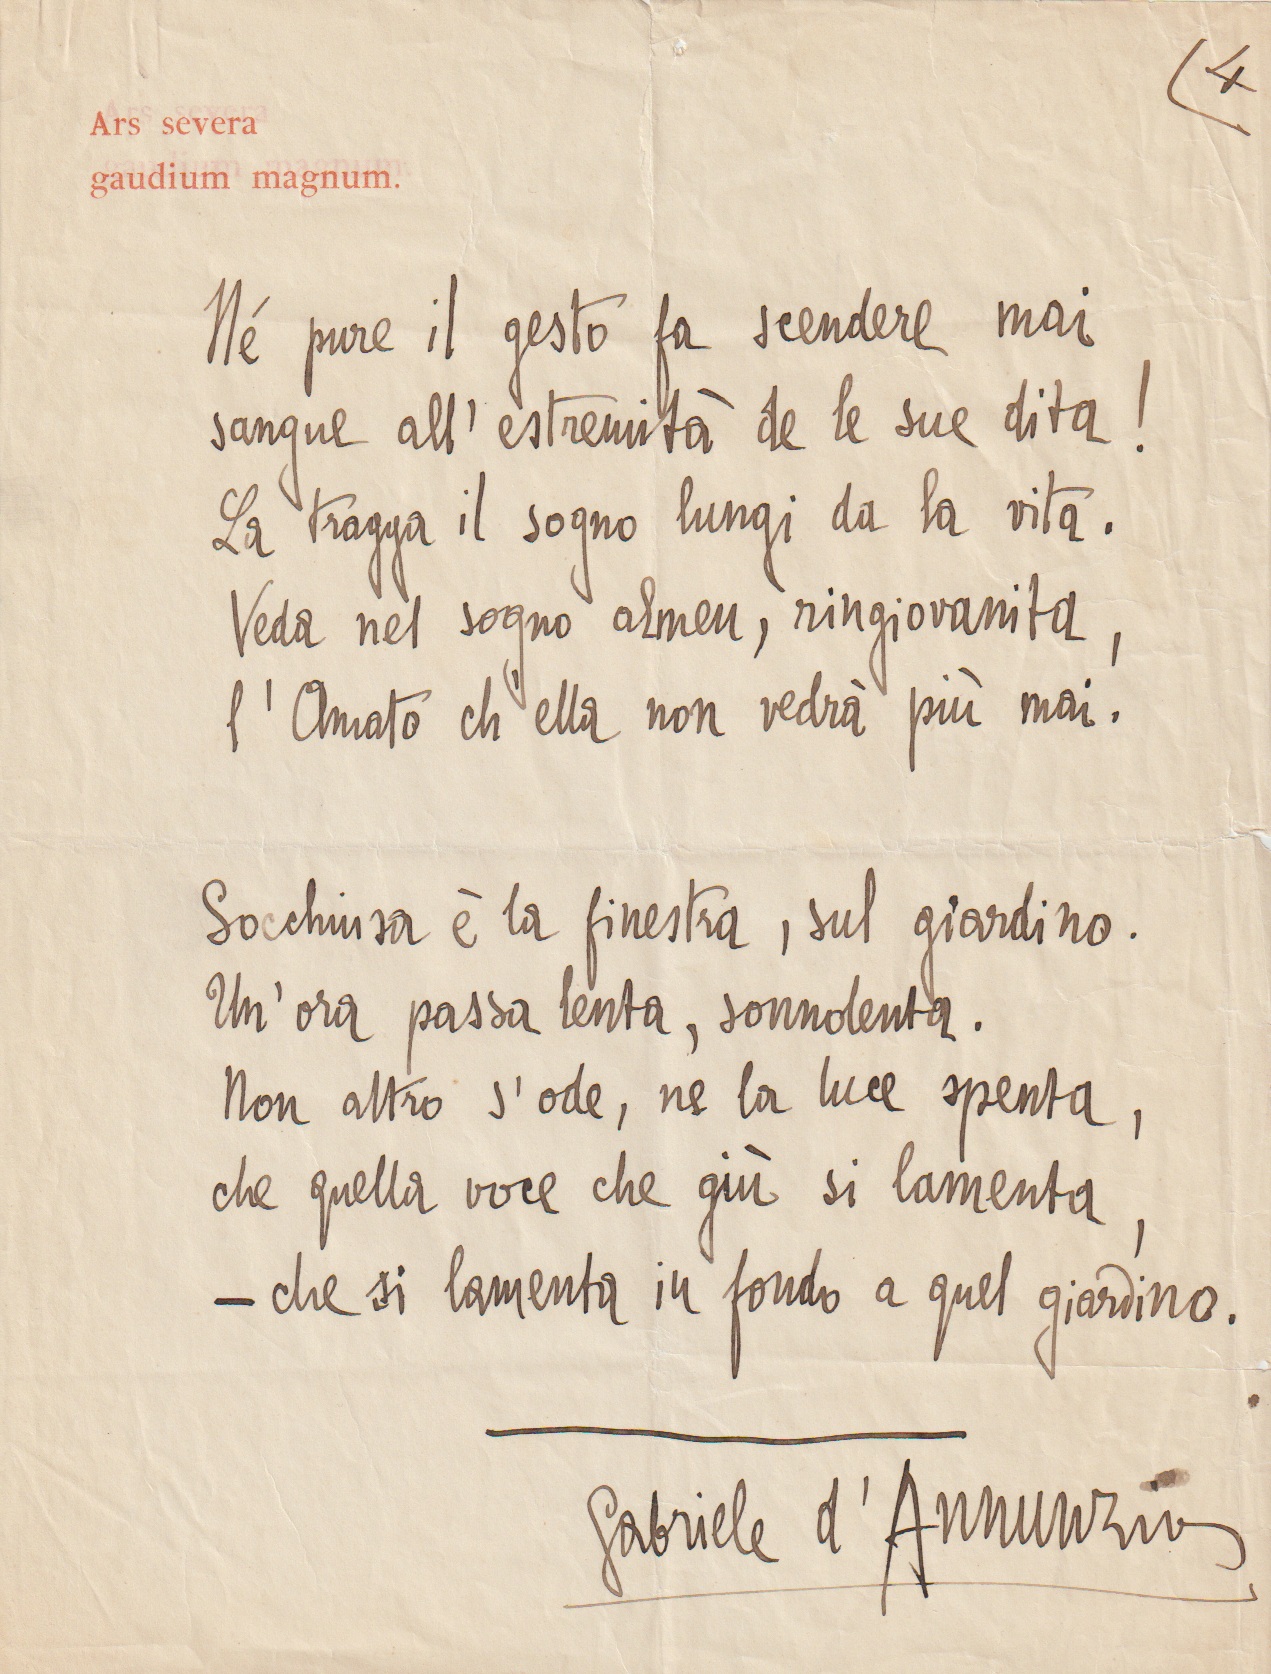 (4
Ars severa
gaudium magnum.
Né pure il gesto fa scendere mai
sangue all'estremità de le sue dita!
La tragga il sogno lungi da la vita.
Veda nel sogno almen, ringiovanita,
l'Amato ch'ella non vedrà più mai.
Socchiusa è la finestra, sul giardino.
Un'ora passa lenta, sonnolenta.
Non altro s'ode, ne la luce spenta,
che quella voce che giù si lamenta,
– che si lamenta in fondo a quel giardino.
Gabriele d'Annunzio